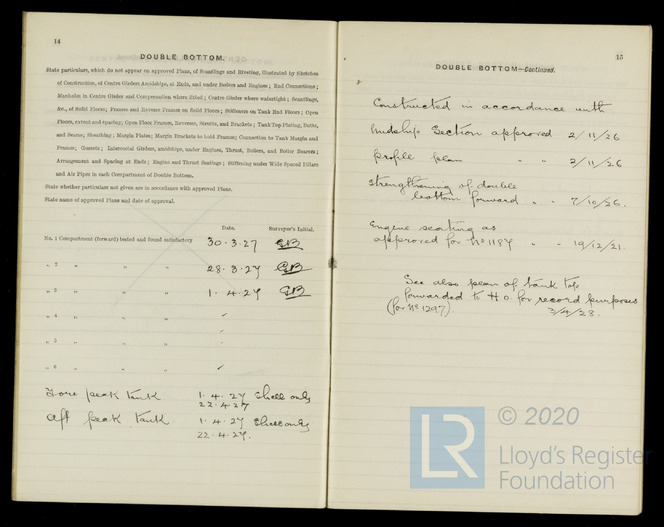 14
DOUBLE BOTTOM.
State particulars, which do not appear on approved Plans, of Scantlings and Riveting, illustrated by Sketches
of Construction, of Centre Girders Amidships, at Ends, and under Boilers and Engines; End Connections;
Manholes in Centre Girders and Compensation where fitted; Centre Girder where watertight; Scantlings,
&c., of Solid Floors; Frames and Reverse Frames on Solid Floors; Stiffeners on Tank End Floors; Open
Floors, extent and spacing; Open Floor Frames, Reverses, Struts, and Brackets; Tank Top Plating, Butts,
and Seams; Sheathing; Margin Plates; Margin Brackets to hold Frames; Connection to Tank Margin and
Frames; Gussets; Intercostal Girders, amidships, under Engines, Thrust, Boilers, and Boiler Bearers;
Arrangement and Spacing at Ends; Engine and Thrust Seatings; Stiffening under Wide Spaced Pillars
and Air Pipes in each Compartment of Double Bottom.
State whether particulars not given are in accordance with approved Plans.
State name of approved Plans and date of approval.
Date. Surveyor's Initial.
No. 1 Compartment (forward) tested and found satisfactory 30.3.27 GB
" 2 " " " 28.3.27 GB
" 3 " " " 1.4.27 GB
" 4 " " "
" 5 " " "
" 6 " " "
Fore peak tank 1.4.27 Shell only
22.4.27
Aft peak tank 1.4.27 Shell only
22.4.27.
15
DOUBLE BOTTOM—Continued.
Constructed in accordance with
Midship Section approved 2/11/26
Profile plan " " 2/11/26
Strengthening of double
bottom forward " " 7/10/26.
Engine seating as
approved for No 1187 " " 19/12/21.
See also plan of tank top
forwarded to H.O. for record purposes
(for No 1297). 3/4/28.
© 2020
LR
Lloyd's Register
Foundation